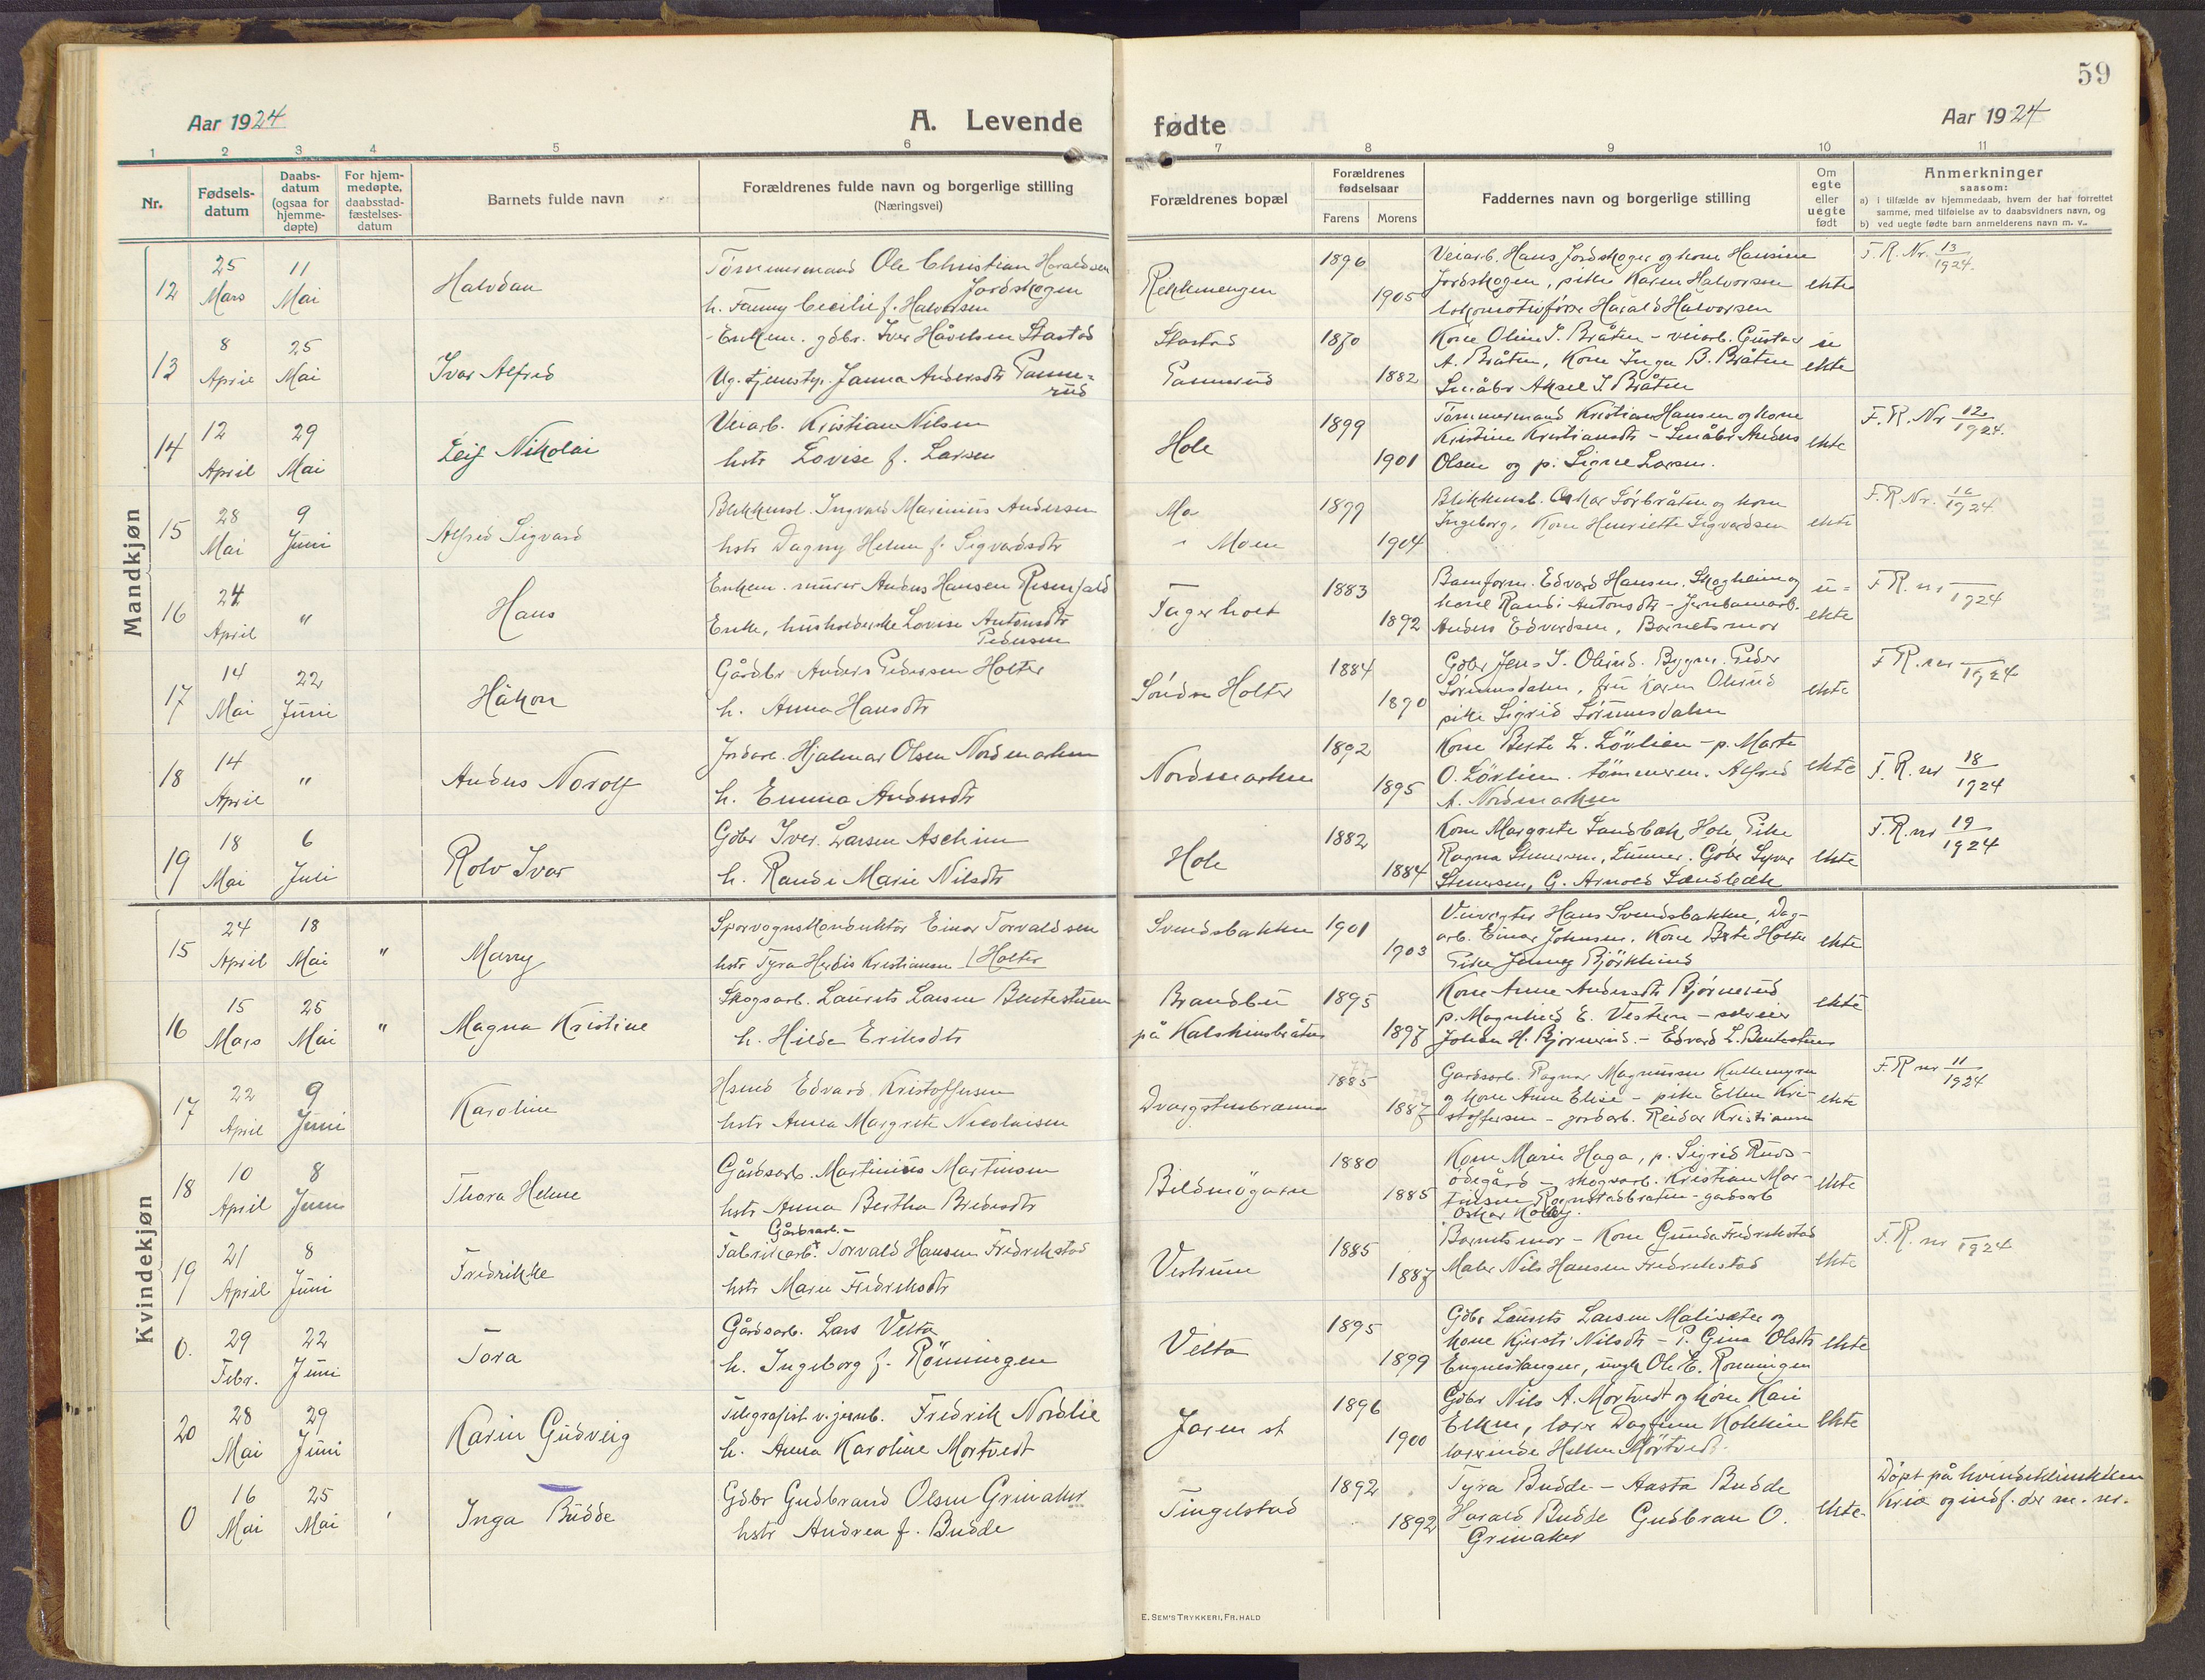 59
Aar 1924
A. Levende
fødte
Aar 1924
1 2 3 4 5 6 7 8 9 10 11
Nr.
Fødsels-
datum
Daabs-
datum
(ogsaa for
hjemme-
døpte)
For hjem-
medøpte,
daabsstad-
fæstelses-
datum
Barnets fulde navn
Forældrenes fulde navn og borgerlige stilling
(Næringsvei)
Forældrenes bopæl
Forældrenes
fødselsaar
Farens Morens
Faddernes navn og borgerlige stilling
Om
egte
eller
uegte
født
Anmerkninger
saasom:
a) i tilfælde av hjemmedaab, hvem der har forrettet
samme, med tilføielse av to daabsvidners navn, og
b) ved uegte fødte barn anmelderens navn m. v.
Mandkjøn
12
25 Mars
11 Mai
Halvdan
Tømmermand Ole Christian Haraldsen
Jordskogen
h. Fanny Cecilie f. Halvorsen
1896
1905
Veiarb. Hans Jordskogen og kone Hansine
Jordskogen, pike Karen Halvorsen
lokomotivfører Harald Halvorsen
ekte
F. R. Nr. 13/1924.
13
8 April
25 Mai
Ivar Alfred
Enkem. gdbr. Iver Håvelsen Stastad
Ug. tjenestp. Janna Andersdtr Pamme=
rud
Stastad
Pammerud
1870
1882
Kone Oline I. Bråten - veiarb. Gustav
A. Bråten, Kone Inga B. Bråten
Småbr Aksel I. Bråten
u
ekte
14
12 April
29 Mai
Leif Nikolai
Veiarb. Kristian Nilsen
hstr Lovise f. Larsen
Hole
1899
1901
Tømmermand Kristian Hansen og kone
Kristine Kristiansdtr - Småbr Anders
Olsen og p. Signe Larsen.
ekte
F. R. Nr 12/1924.
15
28 Mai
9 Juni
Alfred Sigvard
Blikkensl. Ingvald Marinius Andersen
hstr Dagny Helene f. Sigvardsdtr
Mo
" Moen
1899
1904
Blikkensl. Oskar Sørbråten og kone
Ingeborg, Kone Henriette Sigvardsen
ekte
F. R. Nr. 16/1924
16
24 April
"
Hans
Enkem. murer Anders Hansen Risenfald
Enke, husholderske Lovise Antonsdtr
Pedersen
Fagerholt
1883
1892
Banform. Edvard Hansen, Skogheim og
kone Randi Antonsdtr - Jernbanearb.
Anders Edvardsen, Barnets mor
u=
ekte
F. R. nr /1924
17
14 Mai
22 Juni
Håkon
Gårdbr Anders Pedersen Holter
h. Anna Hansdtr
Søndre Holter
1884
1890
Gdbr Jens I. Olerud. Bygm. Peder
Sørumsdalen, fru Karen Olerud
pike Sigrid Sørumsdalen
ekte
F. R. nr /1924
18
14 April
"
Anders Norolf
Jordarb. Hjalmar Olsen Nordmarken
h. Emma Andersdtr
Nordmarken
1892
1895
Kone Berte L. Lövlien - p. Marte
O. Lövlien. tömmerm. Alfred
A. Nordmarken
ekte
F. R. nr 18/1924
19
18 Mai
6 Juli
Rolv Ivar
Gdbr Iver Larsen Aschim
h. Randi Marie Nilsdtr
Hole
1882
1884
Kone Margrete Sandbak, Hole Pike
Ragna Stenersen, Lunner. Gdbr Syver
Stenersen, G. Arnold Sandbæk
ekte
F. R. nr 19/1924
Kvindekjøn
15
24 April
18 Mai
"
Marry
Sporvognskonduktør Einar Torvaldsen
hstr Tyra Herdis Kristiansen / Holter
Svendsbakken
1901
1903
Veivogter Hans Svendsbakken, Dag-
arb. Einar Johnsen, Kone Berte Holter
Pike Jenny Björklund
ekte
16
15 Mars
25 Mai
"
Magna Kristine
Skogsarb. Laurits Larsen Bentestuen
h. Hilda Eriksdtr
Brandbu
på Kalskinsbråten
1895
1897
Kone Anne Andersdtr Bjørnerud
p. Magnhild E. Vestern - selveier
Johan H. Bjørnerud. - Edvard L. Bentestuen
ekte
17
22 April
9 Juni
Karoline
Hsmd Edvard Kristoffersen
hstr Anna Margrete Nicolaisen
Dvergstenbrænna
1885
1887
Gardsarb. Ragnar Magnussen Kullemyren
og kone Anne Elise - pike Ellen Kri-
stoffersen - jordarb. Reidar Kristiansen
ekte
F. R nr 11/1924
18
10 April
8 Juni
Thora Helene
Gårdsarb. Martinius Martinsen
hstr Anna Bertha Bredesdtr
1880
1885
Kone Marie Haga, p. Sigrid Ruds-
ødegård - skogsarb. Kristian Mar-
tinsen Rognstadbråten - gardsarb
Oskar
ekte
19
21 April
8 Juni
Fredrikke
Gårdsarb.
Fabrikarb. Torvald Hansen Fredrikstad
hstr Maren Fredriksdtr
Vestrum
1885
1887
Barnets mor - Kone Gunda Fredrikstad
Maler Nils Hansen Fredrikstad
ekte
F. R. nr /1924
0.
29 Febr.
22 Juni
Tora
Gårdsarb. Lars Velta
h. Ingeborg f. Rönningen
Velta
1895
1899
Gdbr Laurits Larsen Malisæter og
kone Kjersti Nilsdtr - P. Gina Olsdtr
Engnestangen, ungk Ole E. Rönningen
ekte
20
28 Mai
29 Juni
Karin Gudveig
Telegrafist v. jernb. Fredrik Nordlie
h. Anna Karoline Mortvedt
Jaren st
1896
1900
Gdbr Nils A. Mortvedt og kone Kari
Elken, lærer Dagfinn Kokkin
lærerinde Helene Mortvedt.
ekte
0
16 Mai
25 Mai
Inga Budde
Gdbr Gudbrand Olsen Grinaker
hstr Andrea f. Budde
Tingelstad
1892
1892
Tyra Budde - Aasta Budde
Harald Budde Gudbran O.
Grinaker
ekte
Döpt på kvindeklinikken
Kria og indf. der m. nr.
E. SEM'S TRYKKERI, FR.HALD